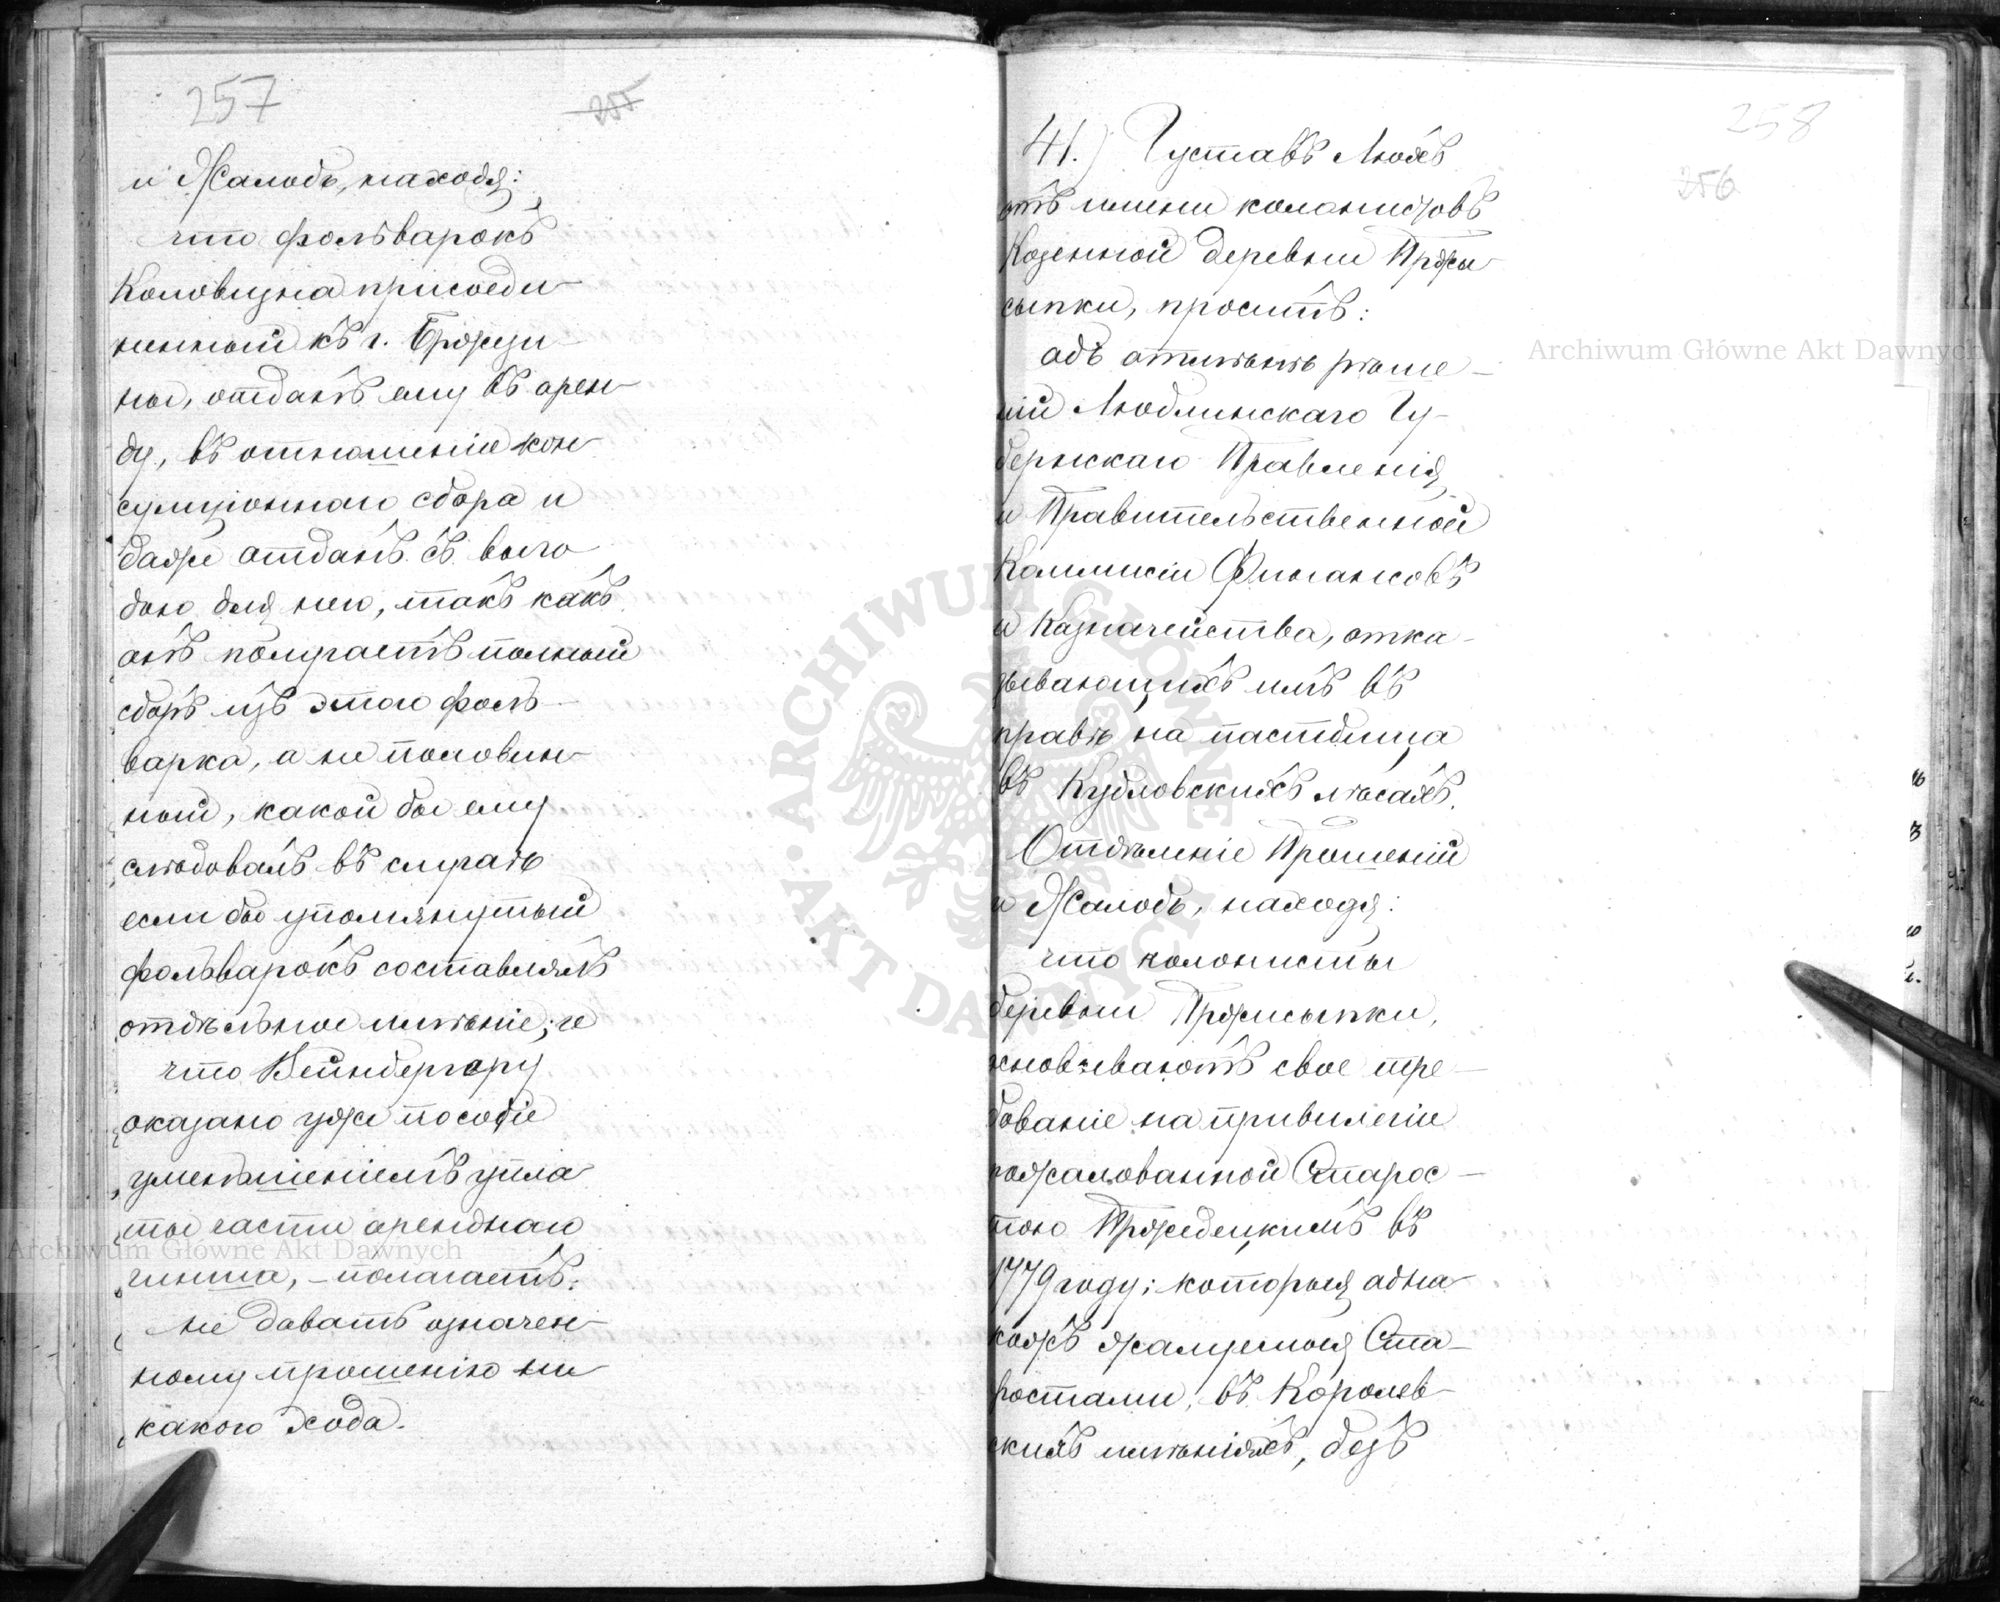 257
255
и Жалобъ, находя:
что фольварокъ
Коловизна присоеди-
ненный къ г. Брожи-
ны, отданъ ему въ арен-
ду, въ отношеніи кон-
сумціоннаго сбора и
даже отданъ съ выго-
дою для него, такъ какъ
онъ получаетъ полный
сборъ изъ этого фоль-
варка, а не половин-
ный, какой бы ему
слѣдовалъ въ случаѣ
если бы упомянутый
фольварокъ составлялъ
отдѣльное имѣніе; и
что Вейнбергеру
оказано уже пособіе
уменьшеніемъ упла-
ты части аренднаго
чинша, – полагаетъ:
не давать означен-
ному прошенію ни-
какого хода.
258
256
41.) Густавъ Люхъ
отъ имени колонистовъ
Казенной деревни Пржи-
сыпки, проситъ:
объ отмѣнѣ рѣше-
ній Люблинскаго Гу-
бернскаго Правленія
и Правительственной
Коммисіи Финансовъ
и Казначейства, отка-
зывающихъ имъ въ
правѣ на пастбища
въ Кубловскихъ лѣсахъ.
Отдѣленіе Прошеній
и Жалобъ, находя:
что колонисты
деревни Пржисыпки,
основываютъ свое тре-
бованіе на привилегіи
пожалованной Старос-
тою Пржебецкимъ въ
1779 году; которыя одна-
кожъ жалуемыя Ста-
ростами, въ Королев-
скихъ имѣніяхъ, безъ
Archiwum Główne Akt Dawnych
Archiwum Główne Akt Dawnych
ARCHIWUM GŁÓWNE
AKT DAWNYCH